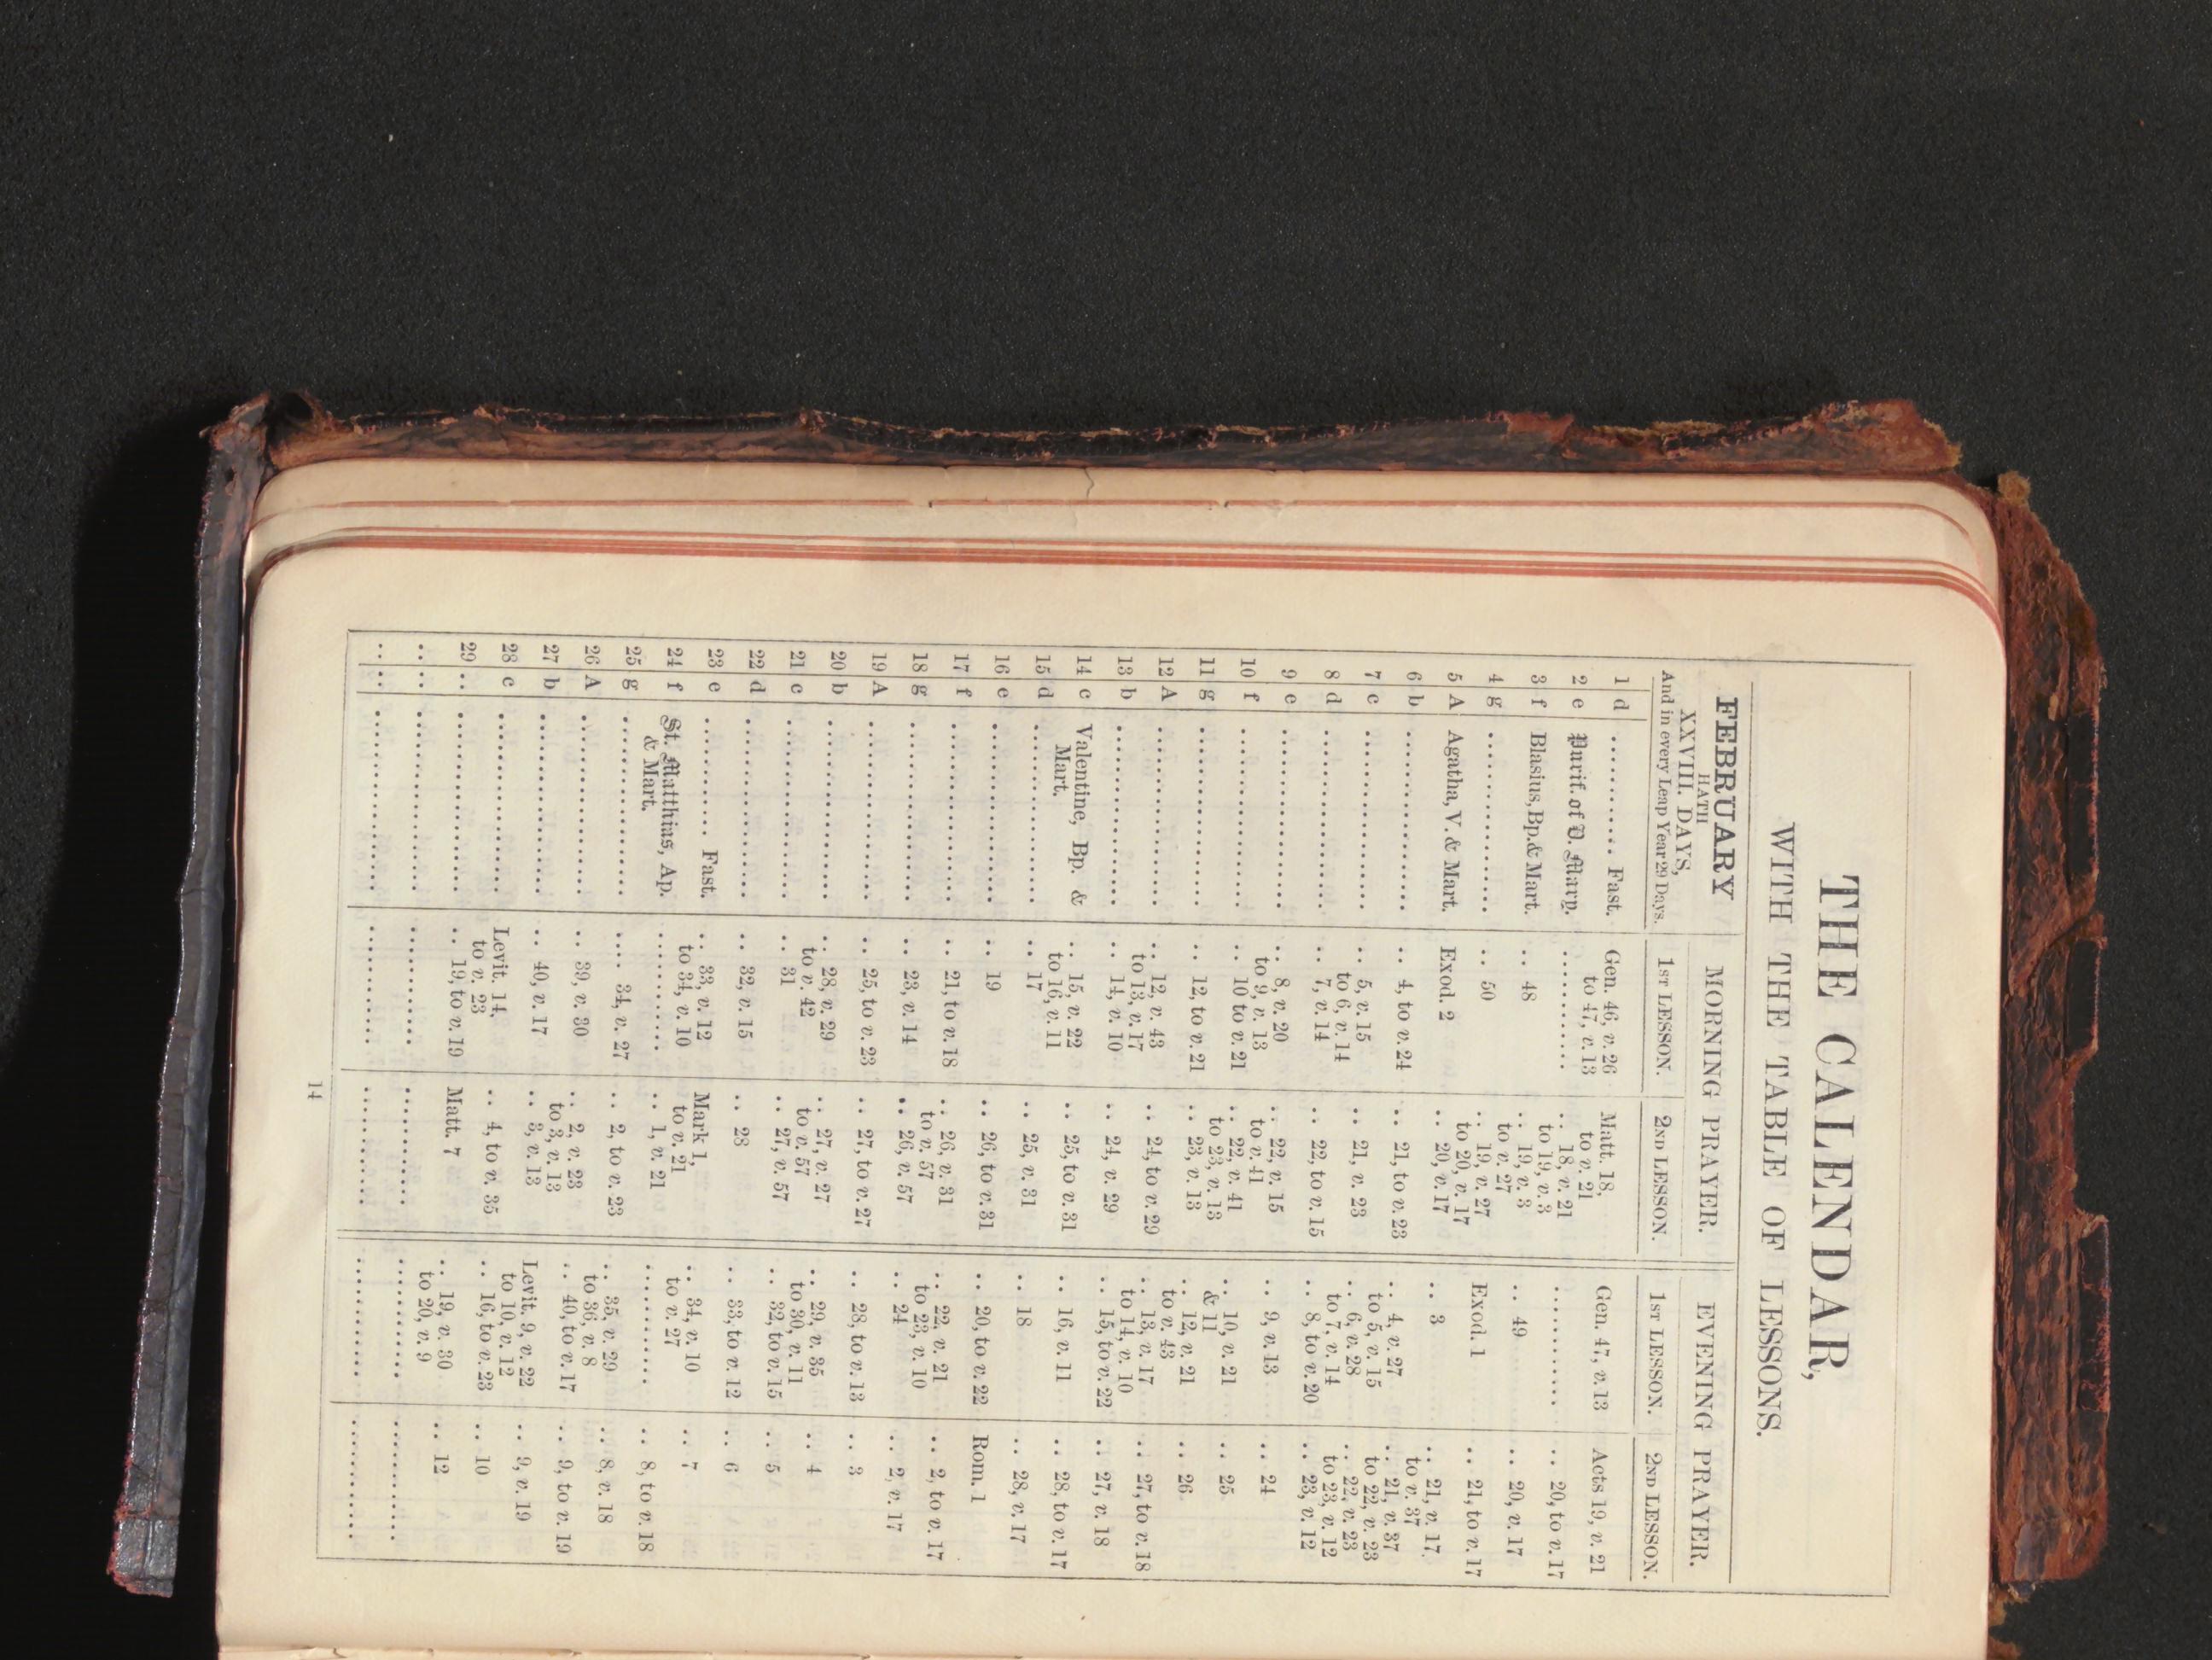 THE CALENDAR,
WITH THE TABLE OF LESSONS.
FEBRUARY MORNING PRAYER. EVENING PRAYER.
HATH
XXVIII. DAYS,
And in every Leap Year 29 Days. 1ST LESSON. 2ND LESSON. 1ST LESSON. 2ND LESSON.
1 d ........... Fast. Gen. 46, v. 26 Matt. 18, Gen. 47, v. 13 Acts 19, v. 21
to 47, v. 13 to v. 21
2 e Purif. of V. Mary. ............ .. 18, v. 21 ............ .. 20, to v. 17
to 19, v. 3
3 f Blasius, Bp. & Mart. .. 48 .. 19, v. 3 .. 49 .. 20, v. 17
to v. 27
4 g .................. .. 50 .. 19, v. 27 Exod. 1 .. 21, to v. 17
to 20, v. 17
5 A Agatha, V. & Mart. Exod. 2 .. 20, v. 17 .. 3 .. 21, v. 17
to v. 37
6 b .................. .. 4, to v. 24 .. 21, to v. 23 .. 4, v. 27 .. 21, v. 37
to 5, v. 15 to 22, v. 23
7 c .................. .. 5, v. 15 .. 21, v. 23 .. 6, v. 28 .. 22, v. 23
to 6, v. 14 to 7, v. 14 to 23, v. 12
8 d .................. .. 7, v. 14 .. 22, to v. 15 .. 8, to v. 20 .. 23, v. 12
9 e .................. .. 8, v. 20 .. 22, v. 15 .. 9, v. 13 .. 24
to 9, v. 13 to v. 41
10 f .................. .. 10 to v. 21 .. 22, v. 41 .. 10, v. 21 .. 25
to 23, v. 13 & 11
11 g .................. .. 12, to v. 21 .. 23, v. 13 .. 12, v. 21 .. 26
to v. 43
12 A .................. .. 12, v. 43 .. 24, to v. 29 .. 13, v. 17 .. 27, to v. 18
to 13, v. 17 to 14, v. 10
13 b .................. .. 14, v. 10 .. 24, v. 29 .. 15, to v. 22 .. 27, v. 18
14 c Valentine, Bp. & .. 15, v. 22 .. 25, to v. 31 .. 16, v. 11 .. 28, to v. 17
Mart. to 16, v. 11
15 d .................. .. 17 .. 25, v. 31 .. 18 .. 28, v. 17
16 e .................. .. 19 .. 26, to v. 31 .. 20, to v. 22 Rom. 1
17 f .................. .. 21, to v. 18 .. 26, v. 31 .. 22, v. 21 .. 2, to v. 17
to v. 57 to 23, v. 10
18 g .................. .. 23, v. 14 .. 26, v. 57 .. 24 .. 2, v. 17
19 A .................. .. 25, to v. 23 .. 27, to v. 27 .. 28, to v. 13 .. 3
20 b .................. .. 28, v. 29 .. 27, v. 27 .. 29, v. 35 .. 4
to v. 42 to v. 57 to 30, v. 11
21 c .................. .. 31 .. 27, v. 57 .. 32, to v. 15 .. 5
22 d .................. .. 32, v. 15 .. 28 .. 33, to v. 12 .. 6
23 e ........... Fast. .. 33, v. 12 Mark 1, .. 34, v. 10 .. 7
to 34, v. 10 to v. 21 to v. 27
24 f St. Matthias, Ap. ............ .. 1, v. 21 ............ .. 8, to v. 18
& Mart.
25 g .................. .... 34, v. 27 .. 2, to v. 23 .. 35, v. 29 .. 8, v. 18
to 36, v. 8
26 A .................. .. 39, v. 30 .. 2, v. 23 .. 40, to v. 17 .. 9, to v. 19
to 3, v. 13
27 b .................. .. 40, v. 17 .. 3, v. 13 Levit. 9, v. 22 .. 9, v. 19
to 10, v. 12
28 c .................. Levit. 14, .. 4, to v. 35 .. 16, to v. 23 .. 10
to v. 23
29 .. .................. .. 19, to v. 19 Matt. 7 .. 19, v. 30 .. 12
to 20, v. 9
14